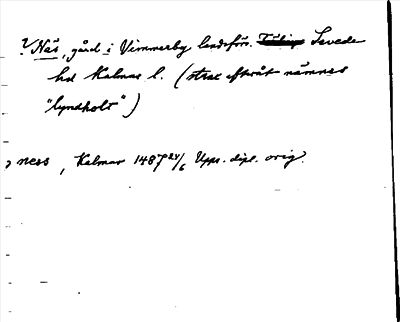 ? Näs, gård i Vimmerby landsförs. Sevede
hd Kalmar l. (strax efteråt nämnes
"lyndholt")
> ness, Kalmar 1487 24/6 Upps. dipl. orig.